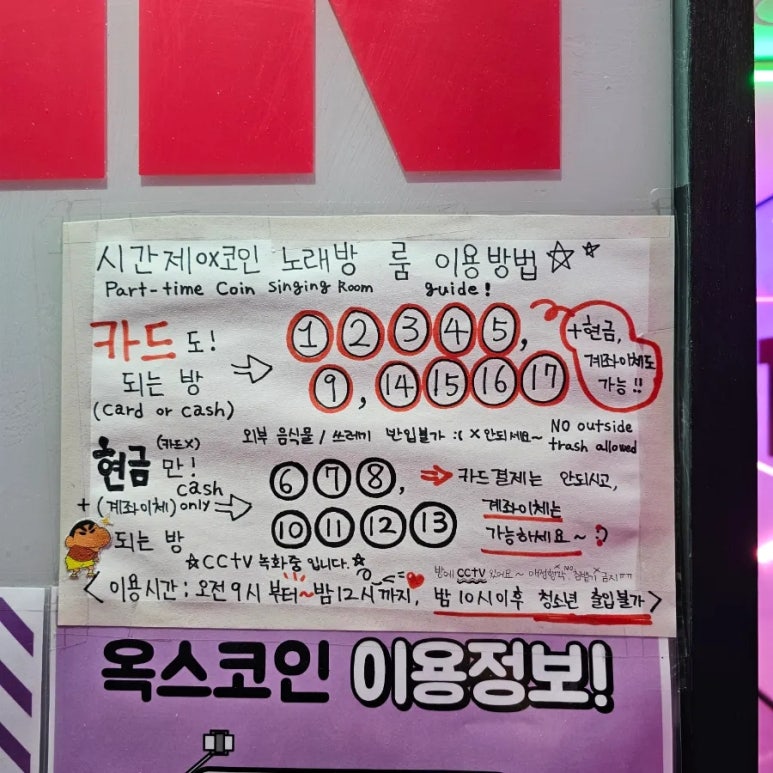 IN
시간제ox코인 노래방 룸 이용방법☆☆
Part-time Coin Singing Room guide!
카드도!
되는 방
(card or cash)
① ② ③ ④ ⑤,
⑨, ⑭ ⑮ ⑯ ⑰
+현금,
계좌이체도
가능!!
외부 음식물 / 쓰레기 반입불가 :( x 안되세요~
NO outside
trash allowed
(카드X)
현금만!
cash
+(계좌이체) only
되는 방
⑥ ⑦ ⑧,
⑩ ⑪ ⑫ ⑬
⇒ 카드결제는 안되시고,
계좌이체는
가능하세요~ :)
☆CCTV 녹화중입니다.☆
방에 CCTV 있어요~ 애정행각 NO
<이용시간: 오전 9시부터~밤 12시까지, 밤 10시 이후 청소년 출입불가>
옥스코인 이용정보!